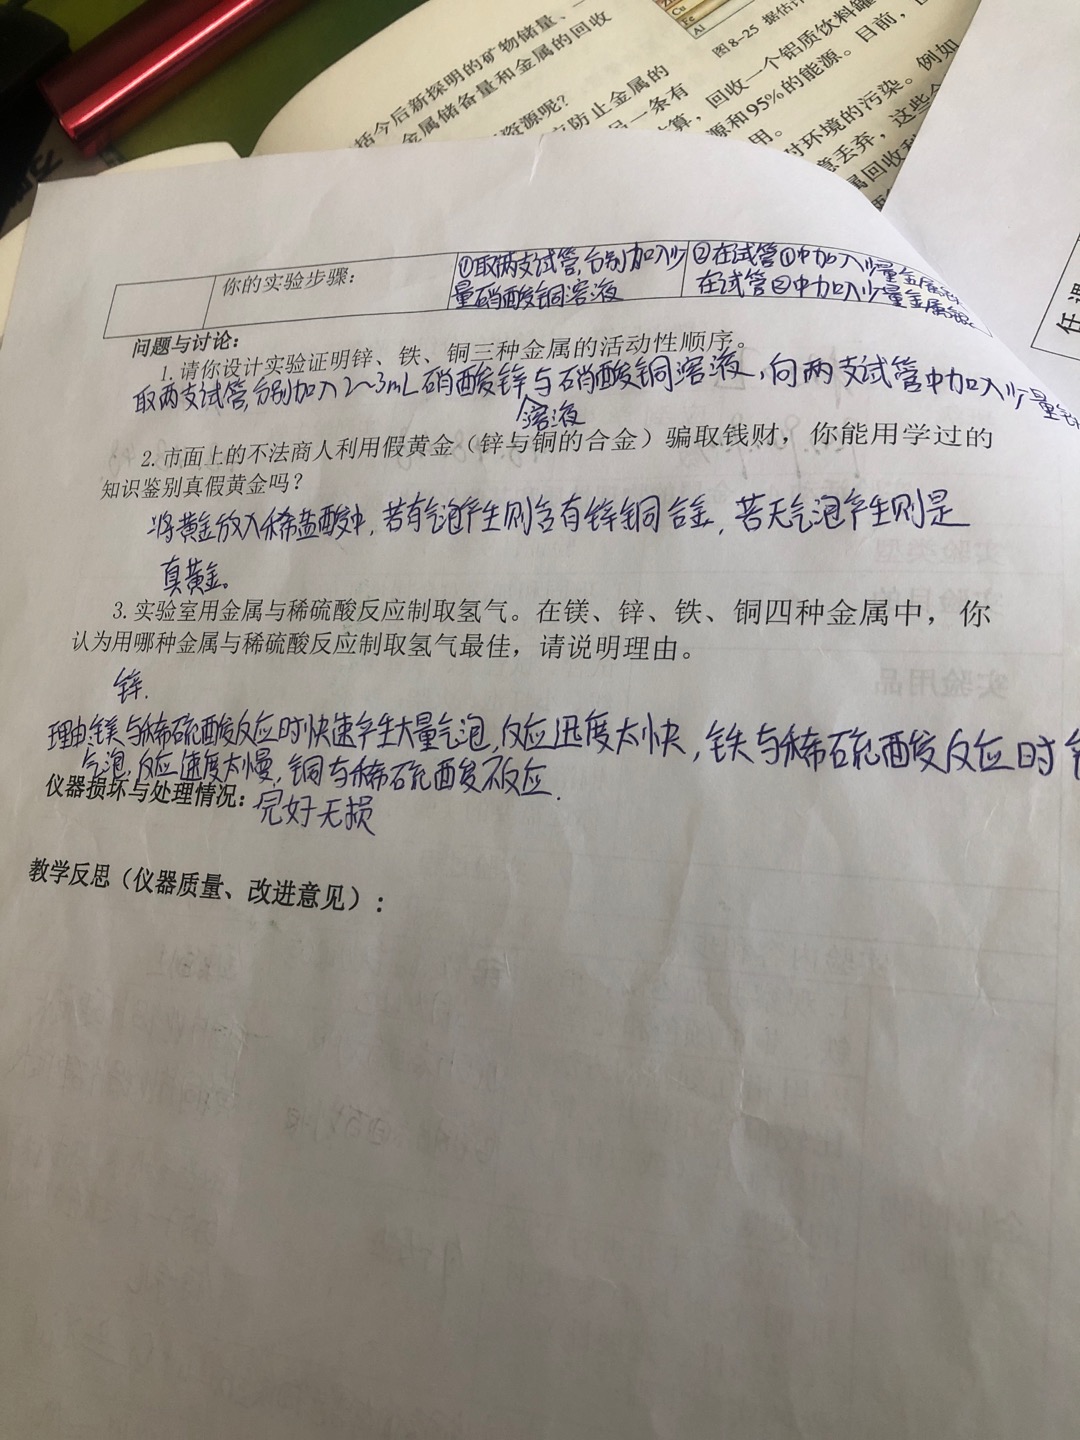 Cu
Fe
Al
图8-25 据估计
括今后新探明的矿物储量、
金属储备量和金属的回收
资源呢?
防止金属的
另一条有
回收一个铝质饮料罐
源和95%的能源。目前,
用。
对环境的污染。例如
意丢弃,这些
属回收利
你的实验步骤:
①取两支试管,分别加入少
量硝酸铜溶液
②在试管①中加入少量金属
在试管②中加入少量金属银
问题与讨论:
1.请你设计实验证明锌、铁、铜三种金属的活动性顺序。
取两支试管,分别加入2~3mL硝酸锌与硝酸铜溶液,向两支试管中加入少量
溶液
2.市面上的不法商人利用假黄金(锌与铜的合金)骗取钱财,你能用学过的
知识鉴别真假黄金吗?
将黄金放入稀盐酸中,若有气泡产生则含有锌铜合金,若无气泡产生则是
真黄金。
3.实验室用金属与稀硫酸反应制取氢气。在镁、锌、铁、铜四种金属中,你
认为用哪种金属与稀硫酸反应制取氢气最佳,请说明理由。
锌.
理由:镁与稀硫酸反应时快速产生大量气泡,反应迅度太快,铁与稀硫酸反应时
气泡,反应速度太慢,铜与稀硫酸不反应.
仪器损坏与处理情况:完好无损
教学反思(仪器质量、改进意见):
任